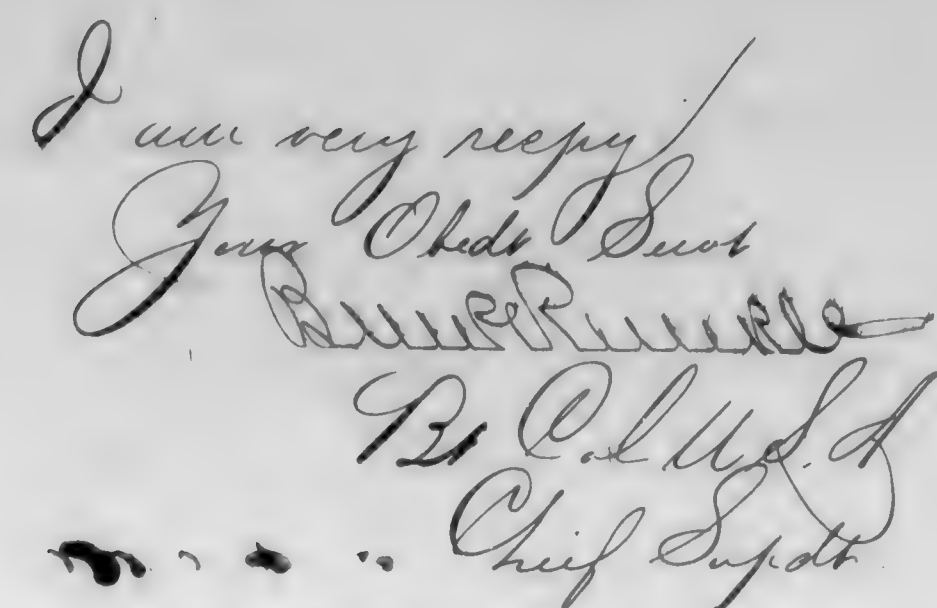 I am very respy
Your Obedt Servt
Ben P Runkle
Bt Col U.S.A
Chief Supdt